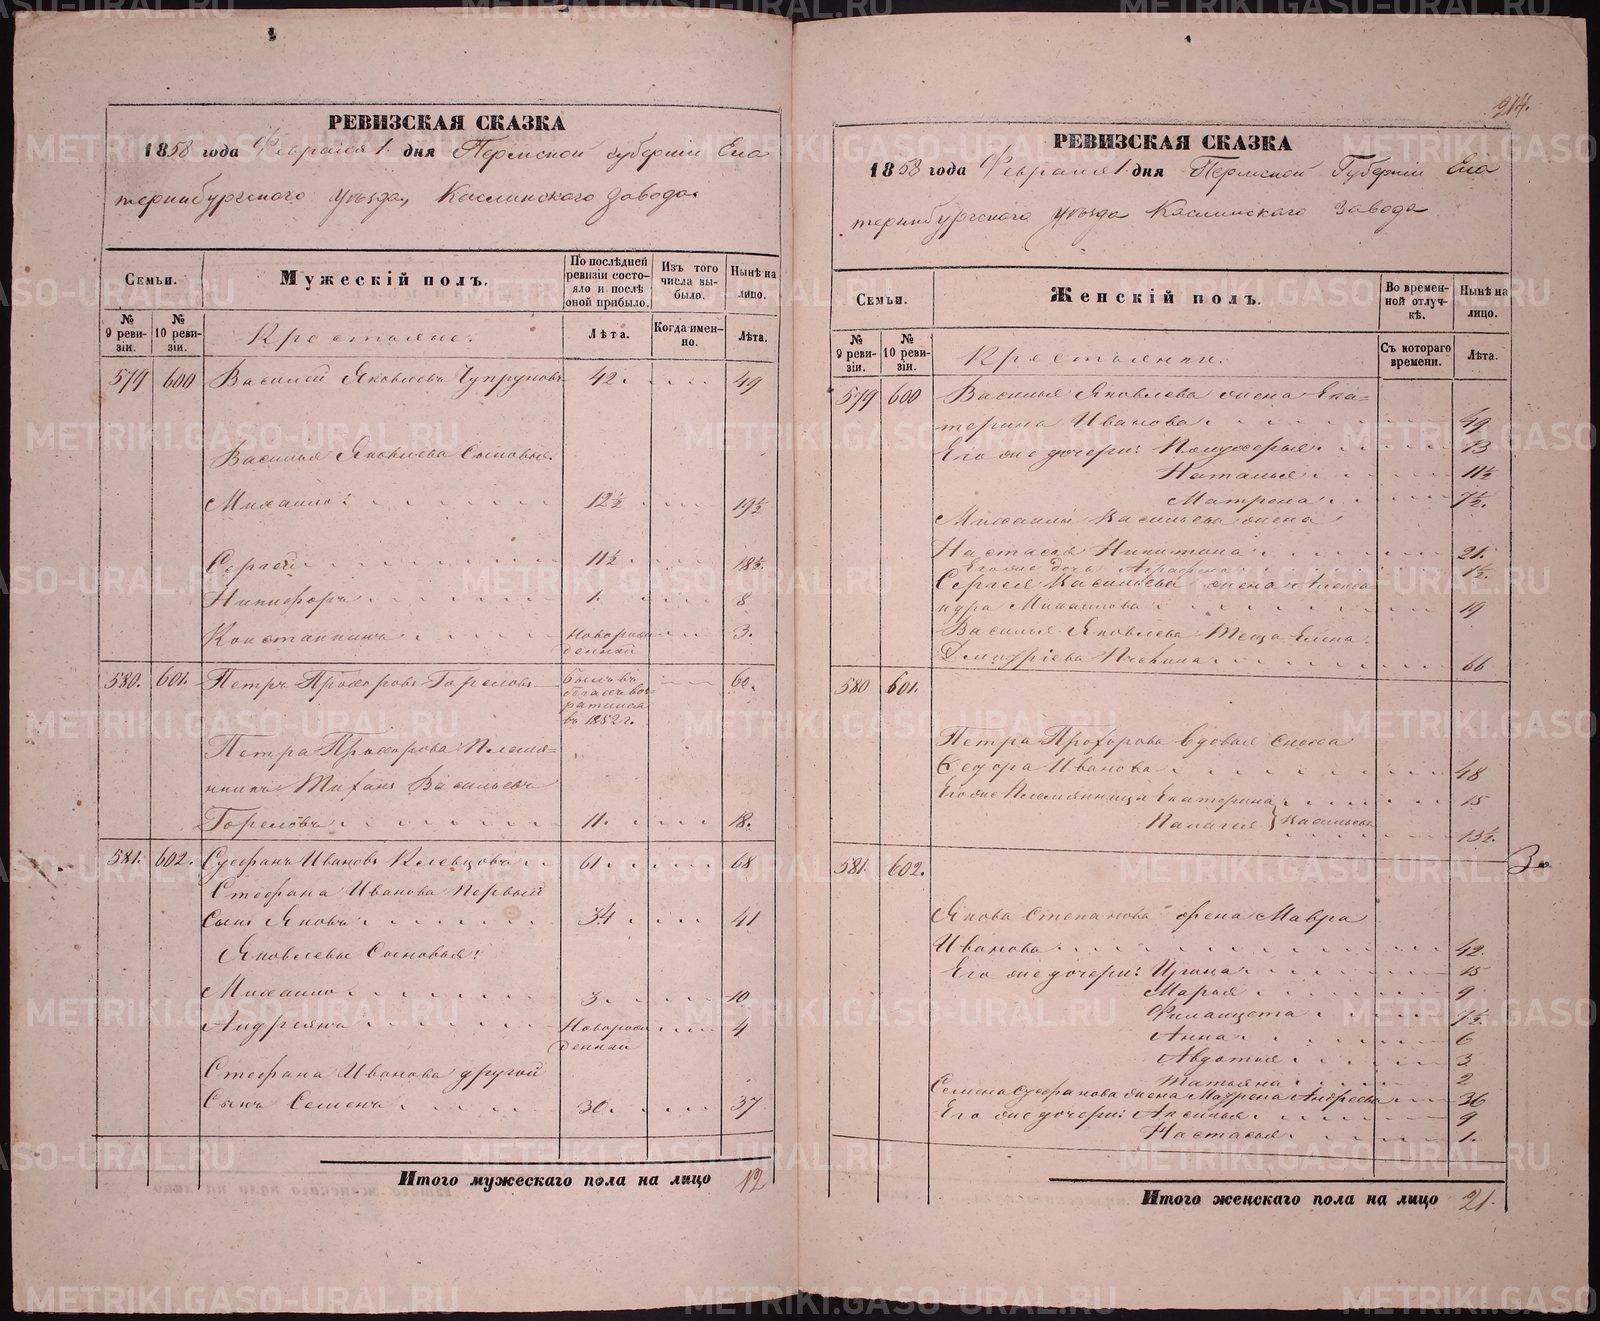 РЕВИЗСКАЯ СКАЗКА
1858 года Февраля 1. дня Пермской губерніи Ека
теринбургскаго уѣзда, Каслинскаго завода.
Семьи.
Мужескій полъ.
По послѣдней ревизіи состояло и послѣ оной прибыло.
Изъ того числа выбыло.
Нынѣ на лицо.
№ 9 ревизіи.
№ 10 ревизіи.
Крестьяне.
Лѣта.
Когда именно.
Лѣта.
579 600 Василей Яковлевъ Чупруновъ 42. 49
Василья Яковлева Сыновья.
Михайло: 12½ 19½
Сергей 11½ 18½.
Никифоръ 1. 8
Константинъ новорож 3.
денный
580. 601. Петръ Прохоровъ Гореловъ Былъ въ 60.
бегахъ воз
ратился
въ 1852 г.
Петра Прохорова Племя=
никъ Василевъ
Гореловъ 11. 18.
581. 602. Стефанъ Ивановъ Клевцовъ 61. 68
Стефана Иванова первый
сынъ Яковъ 34. 41
Яковлевы Сыновья:
Михайло 3. 10
Андреянъ Новорож 4
денный
Стефана Иванова другой
Сынъ Семенъ 30. 37
Итого мужескаго пола на лицо 12
214.
РЕВИЗСКАЯ СКАЗКА
1858 года Февраля 1. дня Пермской Губерніи Ека
теринбургскаго уѣзда Каслинскаго завода
Семьи.
Женскій полъ.
Во временной отлучкѣ.
Нынѣ на лицо.
№ 9 ревизіи.
№ 10 ревизіи.
Крестьянки.
Съ котораго времени.
Лѣта.
579 600 Василья Яковлева жена Ека=
терина Иванова 49
Его же дочери: 13
Наталья 11½
Матрена 7½.
Михайлы Васильева жена
Настасья Никитина 21.
Его же дочь Аграфена 1½.
Сергея Васильева жена Алекса
ндра Михайлова 19
Василья Яковлева теща Елена
Дмитріева 66
580 601.
Петра Прохорова вдовая сноха
Федора Иванова 48
Его же Племянница Екатерина 15
Палагея } Васильевы
13½.
581. 602. 3
Якова Степанова жена Мавра
Иванова 42.
Его же дочери: Ирина 15
Марья 9
Филанцета 7½.
Анна 6
Авдотья 3
Татьяна 2
Семена Стефанова жена Матрена Андреева 36
Его же дочери: Аксинья 9
Настасья 1.
Итого женскаго пола на лицо 21.
METRIKI.GASO-URAL.RU